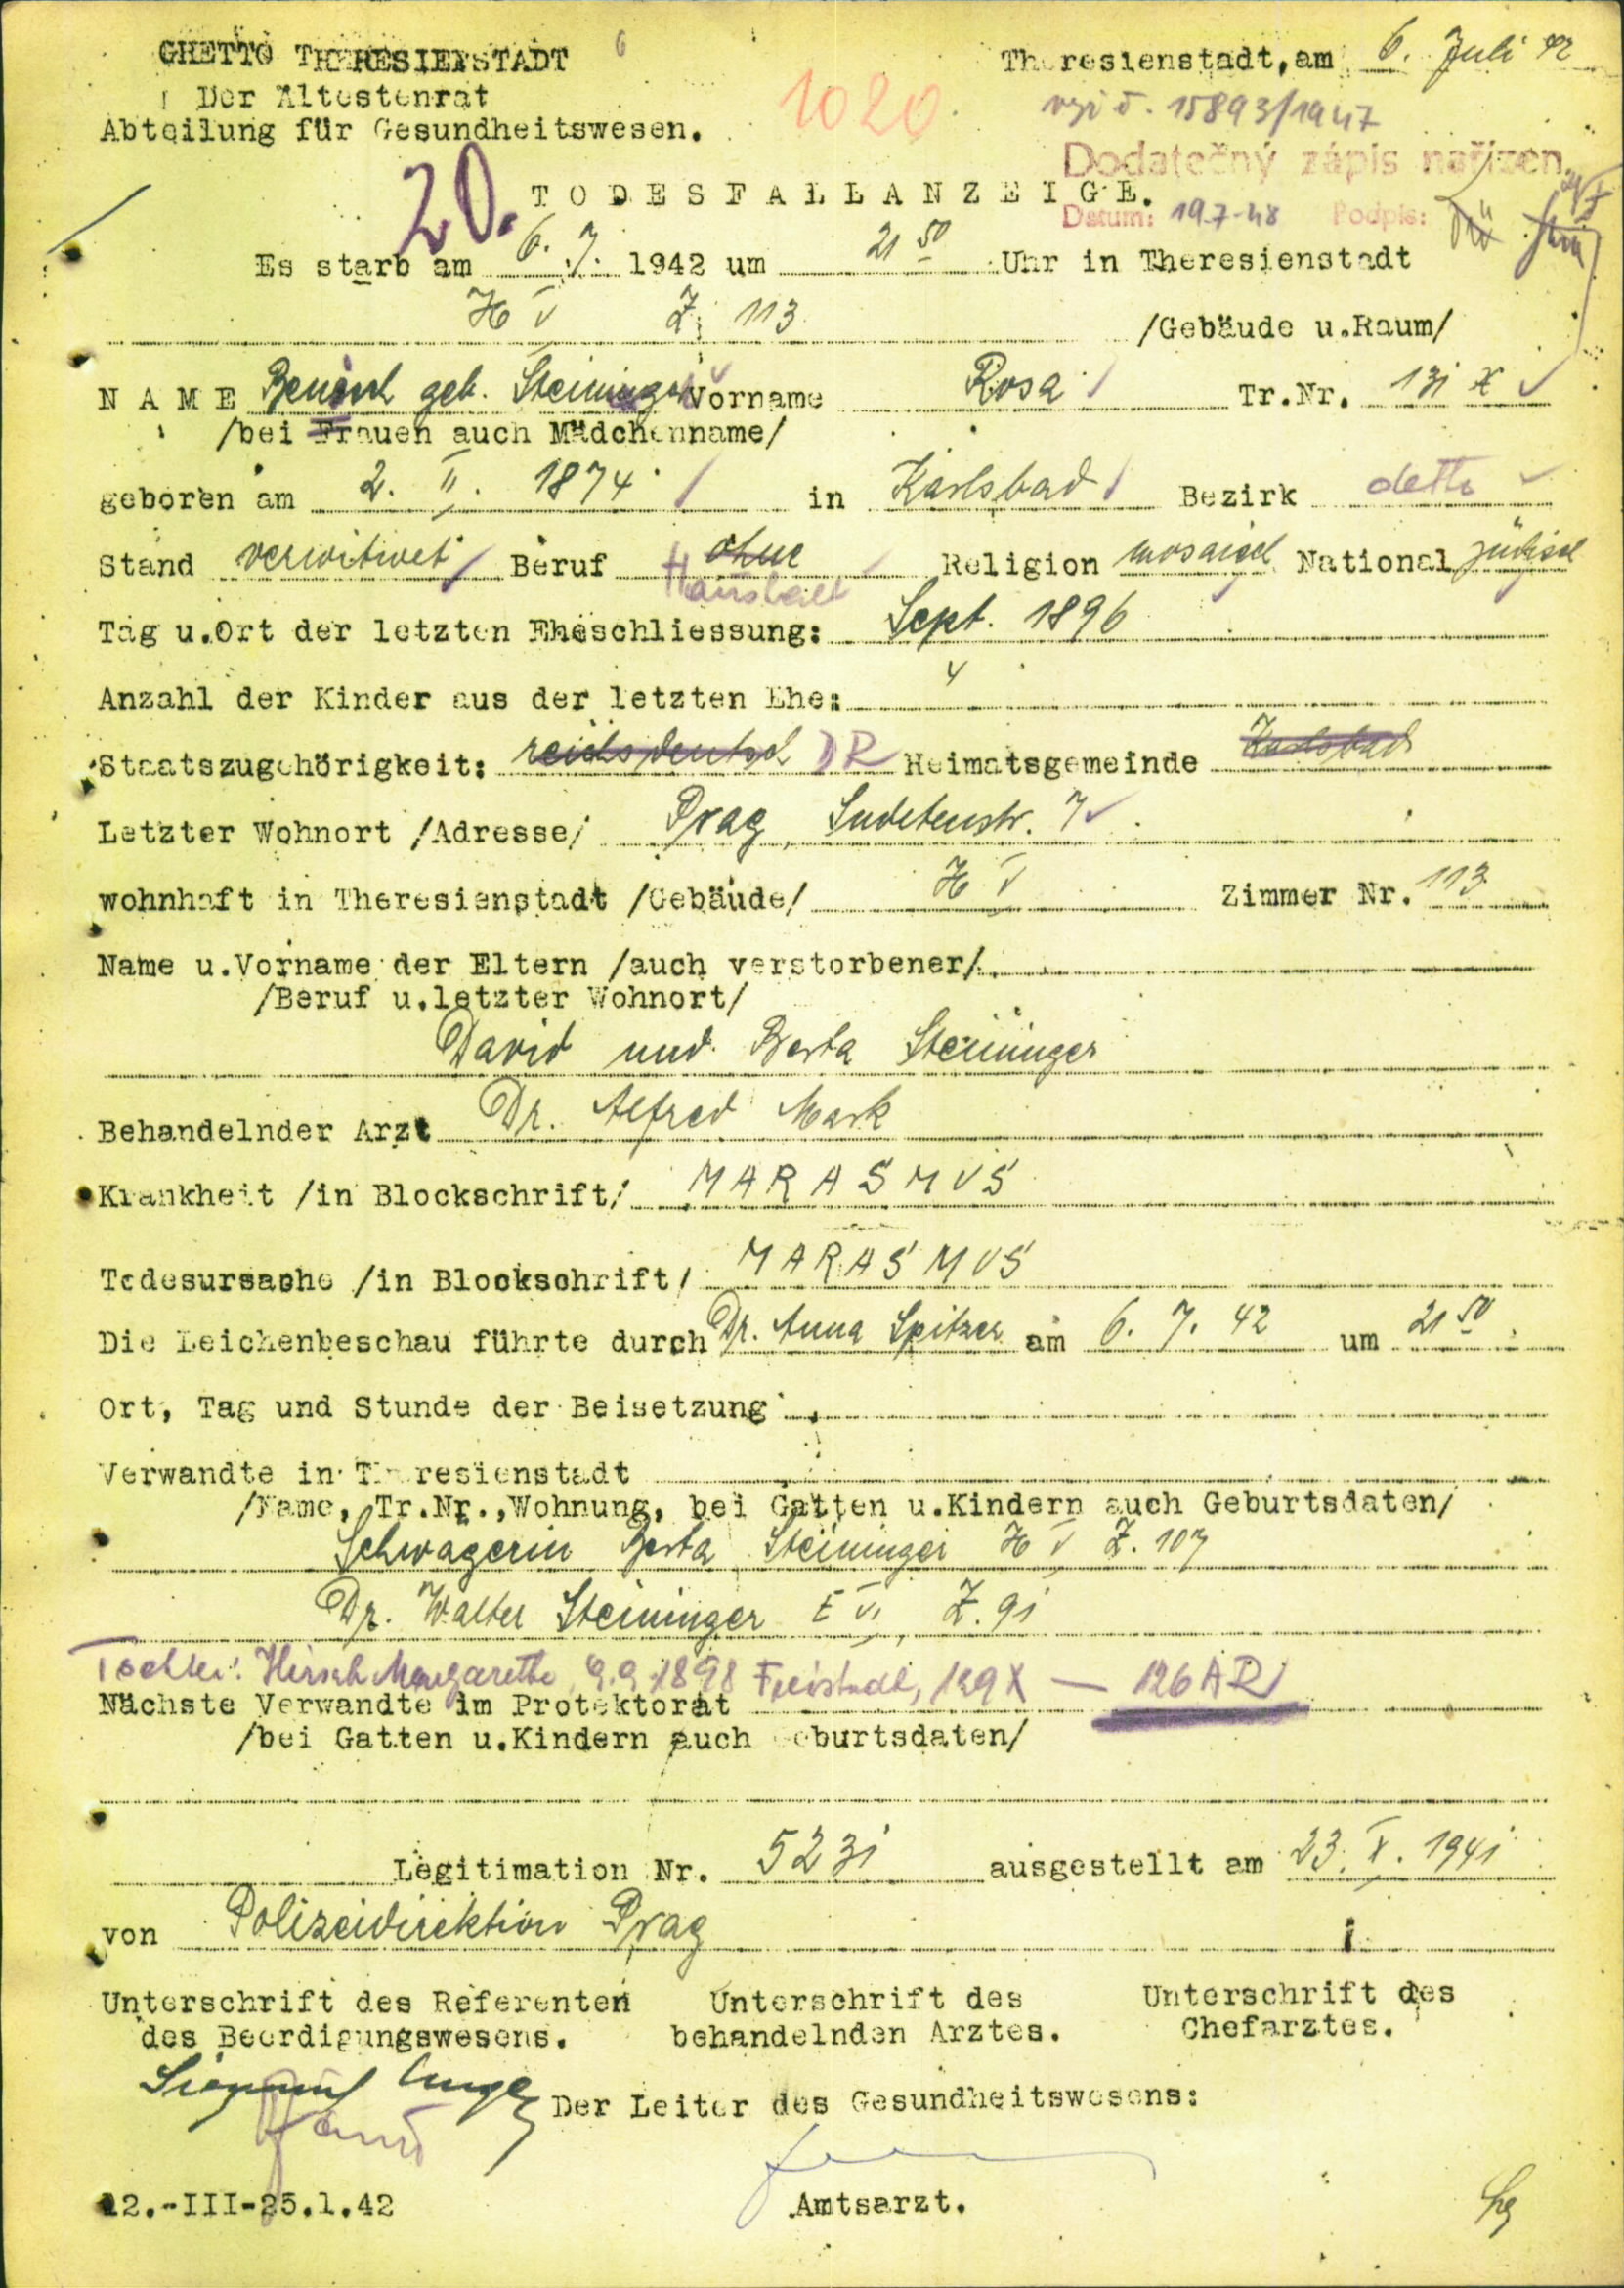 GHETTO THERESIENSTADT
Theresienstadt, am 6. Juli 42
Der Ältestenrat
1020
Abteilung für Gesundheitswesen.
15893/1947
Dodatečný zápis nařízen.
20.
TODESFALLANZEIGE.
Datum: 19.7.48 Podpis:
Es starb am 6. 7. 1942 um 21 50 Uhr in Theresienstadt
H V Z. 113 /Gebäude u.Raum/
NAME geb. Steininger Vorname Rosa Tr.Nr. 131 X
/bei Frauen auch Mädchenname/
geboren am 2. II. 1874 in Karlsbad Bezirk detto
Stand verwitwet Beruf ohne Religion mosaisch National jüdisch
Haushalt
Tag u.Ort der letzten Eheschliessung: Sept. 1896
Anzahl der Kinder aus der letzten Ehe: 4
Staatszugehörigkeit: reichsdeutsch DR Heimatsgemeinde Karlsbad
Letzter Wohnort /Adresse/ Prag, Sudetenstr. 7
wohnhaft in Theresienstadt /Gebäude/ H V Zimmer Nr. 113
Name u.Vorname der Eltern /auch verstorbener/
/Beruf u.letzter Wohnort/
David und Berta Steininger
Behandelnder Arzt Dr. Alfred Mark
Krankheit /in Blockschrift/ MARASMUS
Todesursache /in Blockschrift/ MARASMUS
Die Leichenbeschau führte durch Dr. Anna Spitzer am 6. 7. 42 um 21 50
Ort, Tag und Stunde der Beisetzung
Verwandte in Theresienstadt
/Name, Tr.Nr., Wohnung, bei Gatten u.Kindern auch Geburtsdaten/
Schwägerin Berta Steininger H V Z. 107
Dr. Walter Steininger E VI Z. 91
Tochter: Hirsch Margarethe, 9.9.1898 Freistadt, 129 X — 126 AR
Nächste Verwandte im Protektorat
/bei Gatten u.Kindern auch Geburtsdaten/
Legitimation Nr. 5231 ausgestellt am 23. X. 1941
von Polizeidirektion Prag
Unterschrift des Referenten Unterschrift des Unterschrift des
des Beerdigungswesens. behandelnden Arztes. Chefarztes.
Der Leiter des Gesundheitswesens:
12.-III-25.1.42 Amtsarzt.